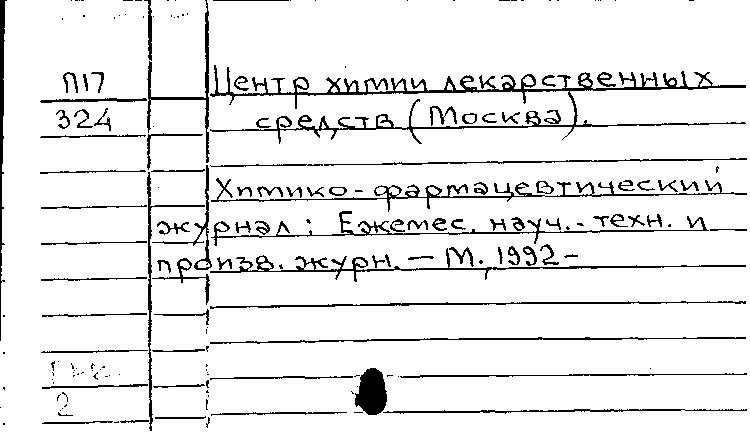 П17
324
Центр химии лекарственных
средств (Москва).
Химико-фармацевтический
журнал: Ежемес. науч.-техн. и
произв. журн. — М., 1992-
2